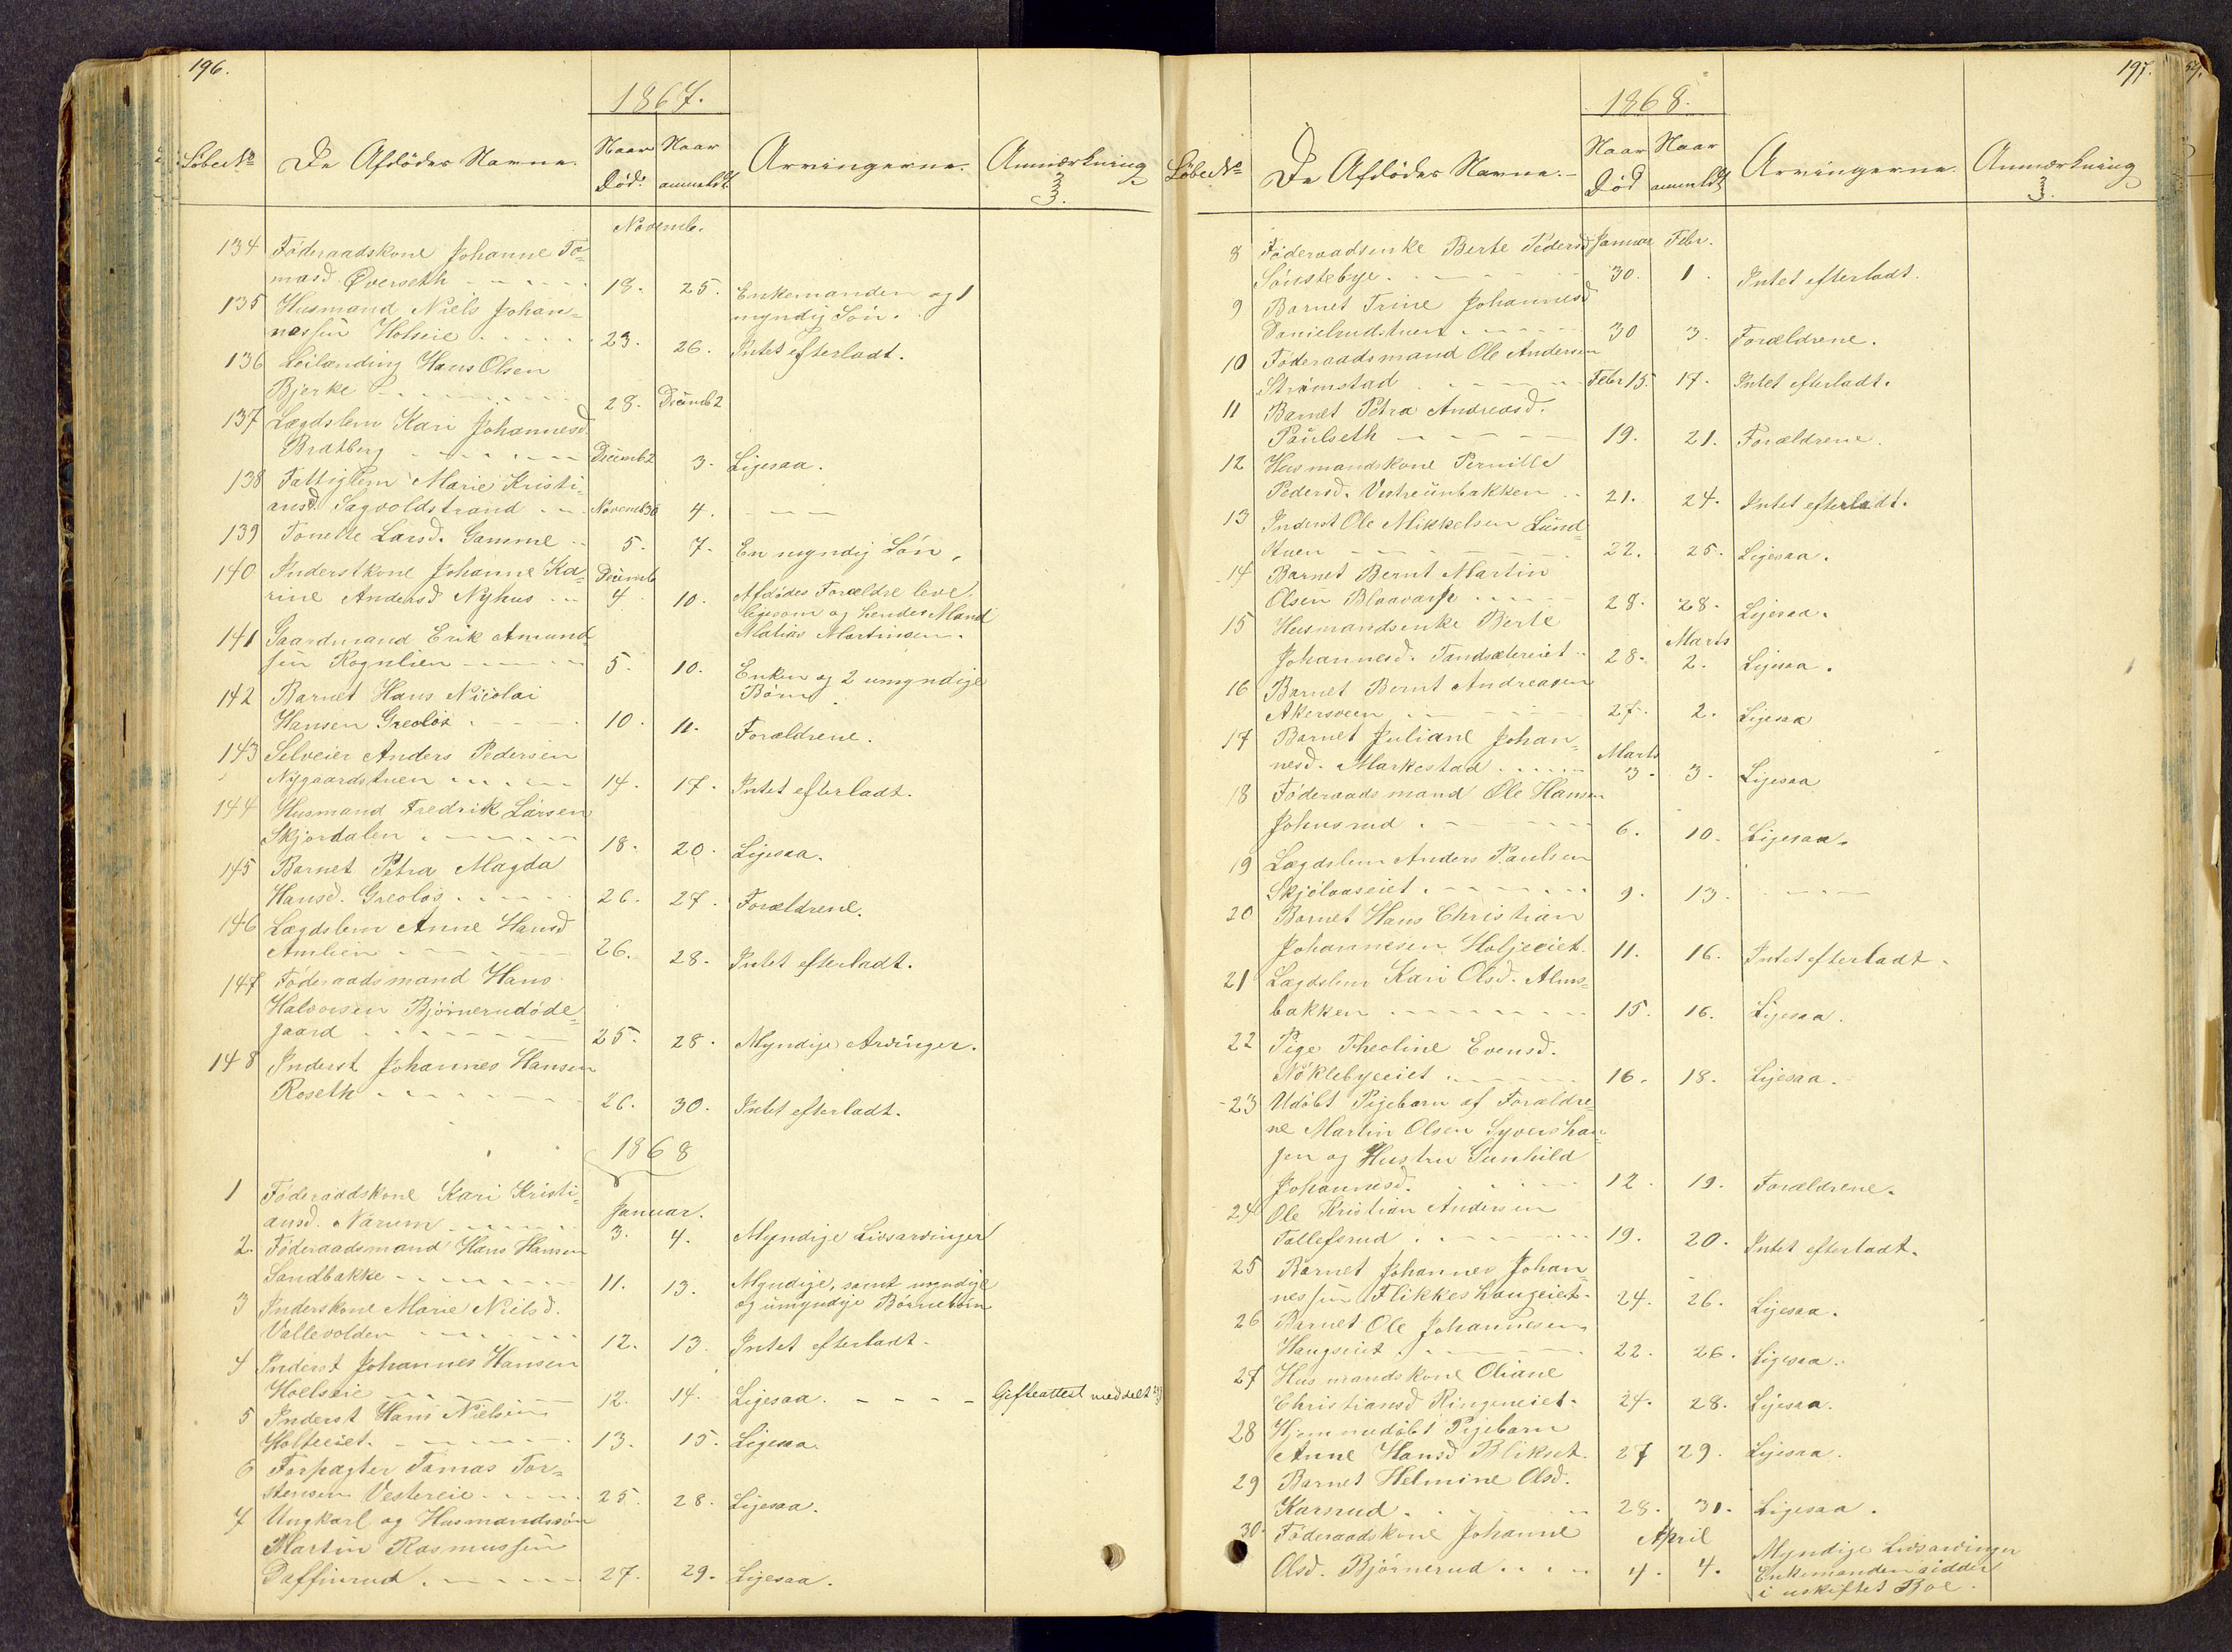 196.
1867.
LøbeNo De Afdødes Navne. Naar Død. Naar anmeldt. Arvingerne. Anmærkning
Novemb.
134 Föderaadskone Johanne To=
masd. Överseth 18. 25. Enkemanden og 1
myndig Sön.
135 Husmand Niels Johan=
nessen Holseie 23. 26. Intet efterladt.
136 Leilænding Hans Olsen
Bjerke 28. Decemb 2
137 Lægdslem Kari Johannesd.
Bratberg Decemb 2 3. Ligesaa.
138 Fattiglem Marie Kristi=
ansd. Sagvoldstrand Novemb 30 4. - - -
139 Tonette Larsd. Gamme 5. 7. En myndig Sön.
140 Inderstkone Johanne Ka=
rine Andersd Nyhus Decemb 4 10. Afdödes Forældre leve
ligesom og hendes Mand
Matias Martinsen.
141 Gaardmand Erik Amund
sen Rognlien 5. 10. Enken og 2 umyndige
Börn
142 Barnet Hans Nicolai
Hansen Greolös 10. 11. Forældrene.
143 Selveier Anders Pedersen
Nygaardstuen 14. 17. Intet efterladt.
144 Husmand Fredrik Larsen
Skjordalen 18. 20. Ligesaa.
145 Barnet Petra Magda
Hansd. Greolös 26. 27. Forældrene.
146 Lægdslem Anne Hansd
Amlien 26. 28. Intet efterladt.
147 Föderaadsmand Hans
Halvorsen Björnerudöde=
gaard 25. 28. Myndige Arvinger.
148 Inderst Johannes Hansen
Roseth 26. 30. Intet efterladt.
1868
1 Föderaadskone Kari Kristi=
ansd. Narum Januar. 3. 4. Myndige Livsarvinger
2. Föderaadsmand Hans Hansen
Sandbakke 11. 13. Myndige, samt myndige
og umyndige Börnebörn
3 Inderskone Marie Nielsd.
Vallevolden 12. 13. Intet efterladt.
4 Inderst Johannes Hansen
Hoelseie 12. 14. Ligesaa. - - - - Gifteattest meddelt
5 Inderst Hans Nielsen
Holteeiet. 13. 15. Ligesaa.
6 Forpagter Tomas Tor=
stensen Vestereie 25. 28. Ligesaa.
7 Ungkarl og Husmandssön
Martin Rasmussen
Daffinrud 27. 29. Ligesaa.
197.
1868.
LøbeNo De Afdødes Navne. Naar Død Naar anmeldt Arvingerne. Anmærkning
8 Föderaadsenke Berte Pedersd Januar Febr.
Sönstebye 30. 1. Intet efterladt.
9 Barnet Trine Johannesd
Danielrudstuen 30 3. Forældrene.
10 Föderaadsmand Ole Andersen
Strömstad Febr 15. 17. Intet efterladt.
11 Barnet Petra Andreasd.
Paulseth 19. 21. Forældrene.
12 Husmandskone Pernille
Pedersd. Vestreenbakken 21. 24. Intet efterladt.
13 Inderst Ole Mikkelsen Lund
stuen 22. 25. Ligesaa.
14 Barnet Bernt Martin
Olsen Blaavarp 28. 28. Ligesaa.
15 Husmandsenke Berte
Johannesd. Tandsætereiet 28. Marts 2. Ligesaa.
16 Barnet Bernt Andreasen
Akersveen 27. 2. Ligesaa
17 Barnet Juliane Johan=
nesd. Markestad Marts 3. 3. Ligesaa
18 Föderaadsmand Ole Hansen
Johnsrud 6. 10. Ligesaa.
19 Lægdslem Anders Paulsen
Skjölaaseiet 9. 13. - - - -
20 Barnet Hans Christian
Johannesen Holjeeiet 11. 16. Intet efterladt.
21 Lægdslem Kari Olsd. Alms=
bakken 15. 16. Ligesaa.
22 Pige Theoline Evensd.
Nöklebyeeiet 16. 18. Ligesaa.
23 Udöbt Pigebarn af Forældre=
ne Martin Olsen Syvershau=
gen og Hustru Gunhild
Johannesd. 12. 19. Forældrene.
24 Ole Kristian Andersen
Tollefsrud 19. 20. Intet efterladt.
25 Barnet Johannes Johan=
nessen Flikkeshaugeiet 24. 26. Ligesaa.
26 Barnet Ole Johannesen
Haugseiet 22. 26. Ligesaa.
27 Husmandskone Oliane
Christiansd Ringeneiet 24. 28. Ligesaa.
28 Hjemmedöbt Pigebarn
Anne Hansd Blikset 27 29. Ligesaa.
29 Barnet Helmine Olsd.
Karsrud 28. 31. Ligesaa.
30. Föderaadskone Johanne April
Olsd. Björnerud 4. 4. Myndige Livsarvinger
Enkemanden sidder
i uskiftet Boe.